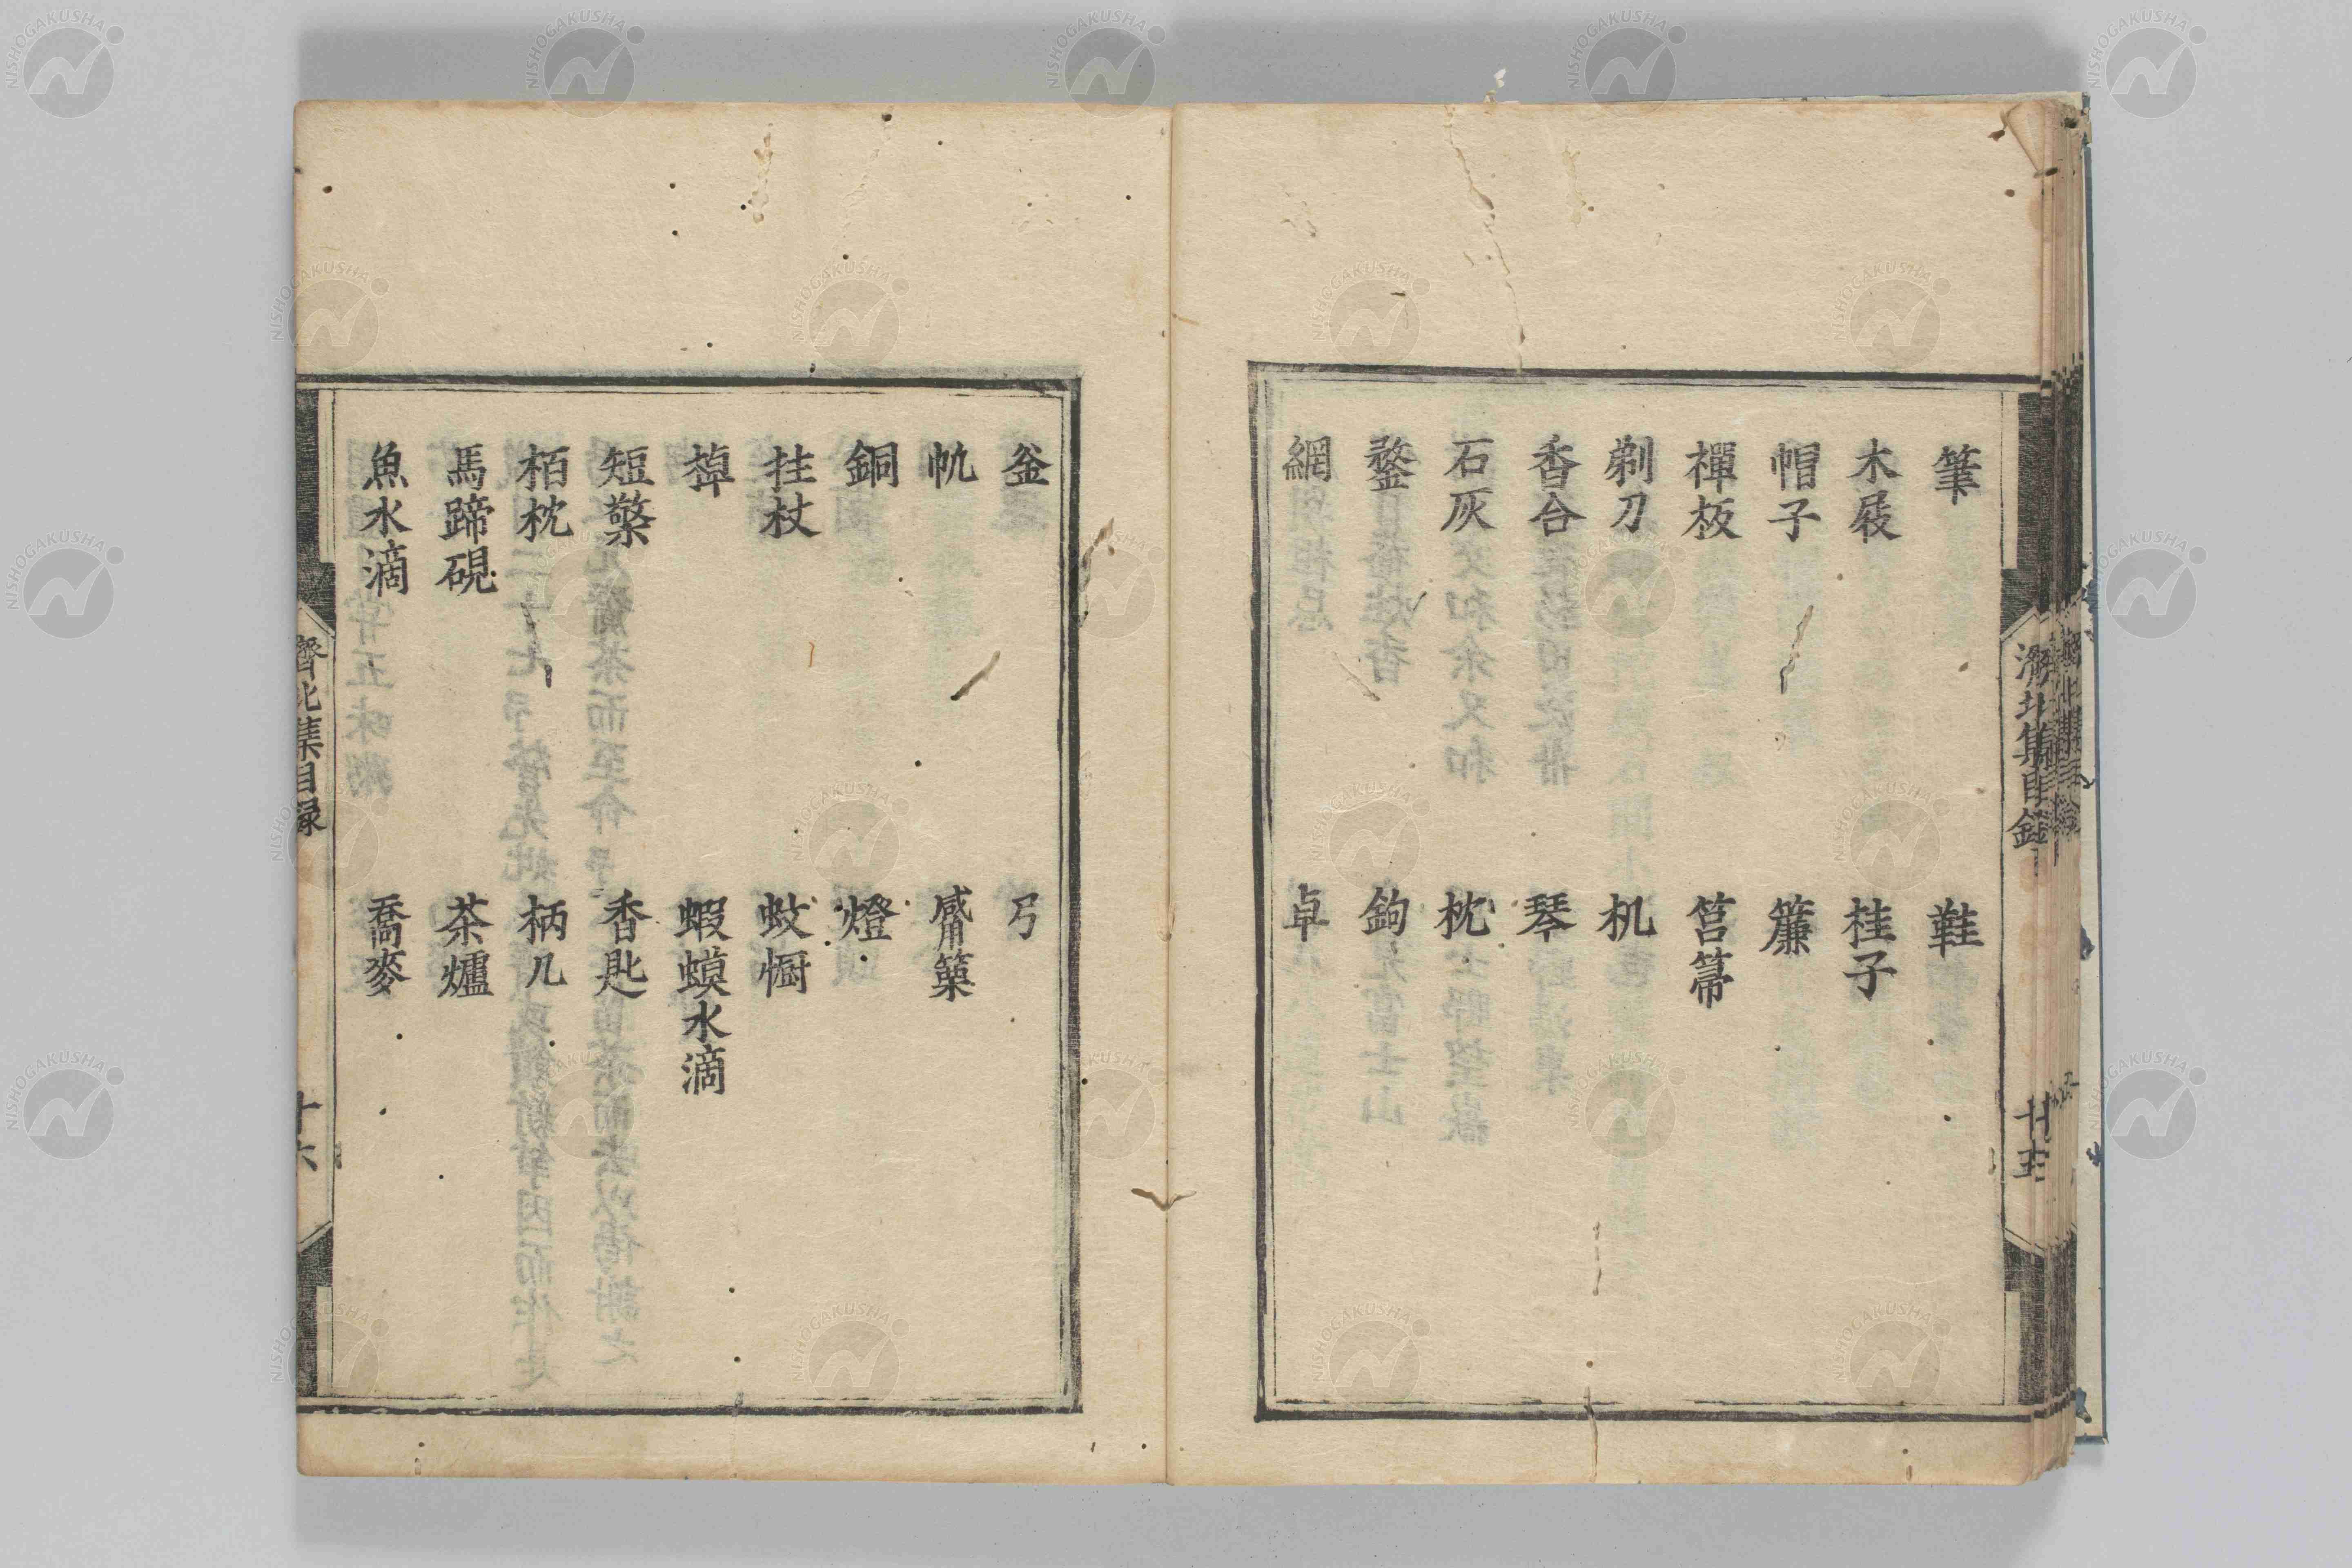 筆　鞋
木屐　桂子
帽子　簾
禪板　筥箒
剃刀　机
香合　琴
石灰　枕
鍪　鉤
網　卓
濟北集目録　廿五
釜　弓
帆　觱篥
銅　燈
拄杖　蚊㡡
蝦蟆水滴
短檠　香匙
栢枕　柄几
馬蹄硯　茶爐
魚水滴　喬麥
濟北集目録　十六
NISHOGAKUSHA